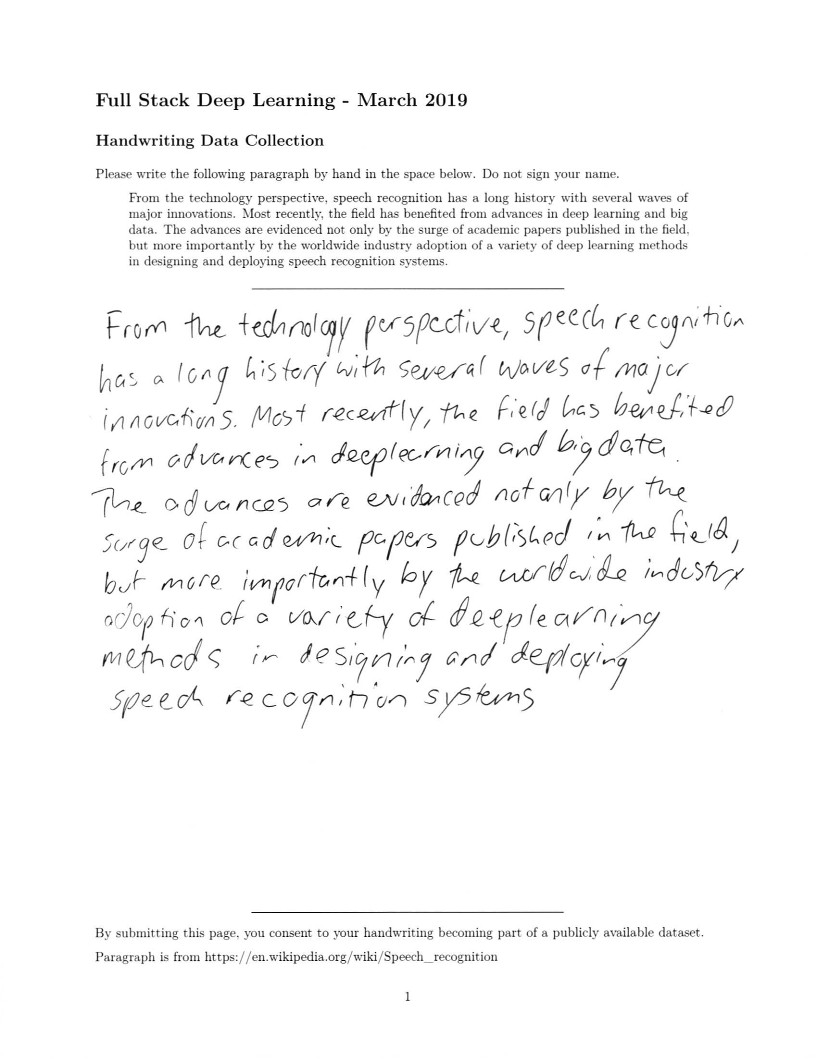 Full Stack Deep Learning - March 2019
Handwriting Data Collection
Please write the following paragraph by hand in the space below. Do not sign your name.
From the technology perspective, speech recognition has a long history with several waves of
major innovations. Most recently, the field has benefited from advances in deep learning and big
data. The advances are evidenced not only by the surge of academic papers published in the field,
but more importantly by the worldwide industry adoption of a variety of deep learning methods
in designing and deploying speech recognition systems.
From the technology perspective, speech recognition
has a long history with several waves of major
innovations. Most recently, the field has benefited
from advances in deeplearning and big data.
The advances are evidenced not only by the
surge of academic papers published in the field,
but more importantly by the worldwide industry
adoption of a variety of deeplearning
methods in designing and deploying
speech recognition systems
By submitting this page, you consent to your handwriting becoming part of a publicly available dataset.
Paragraph is from https://en.wikipedia.org/wiki/Speech_recognition
1